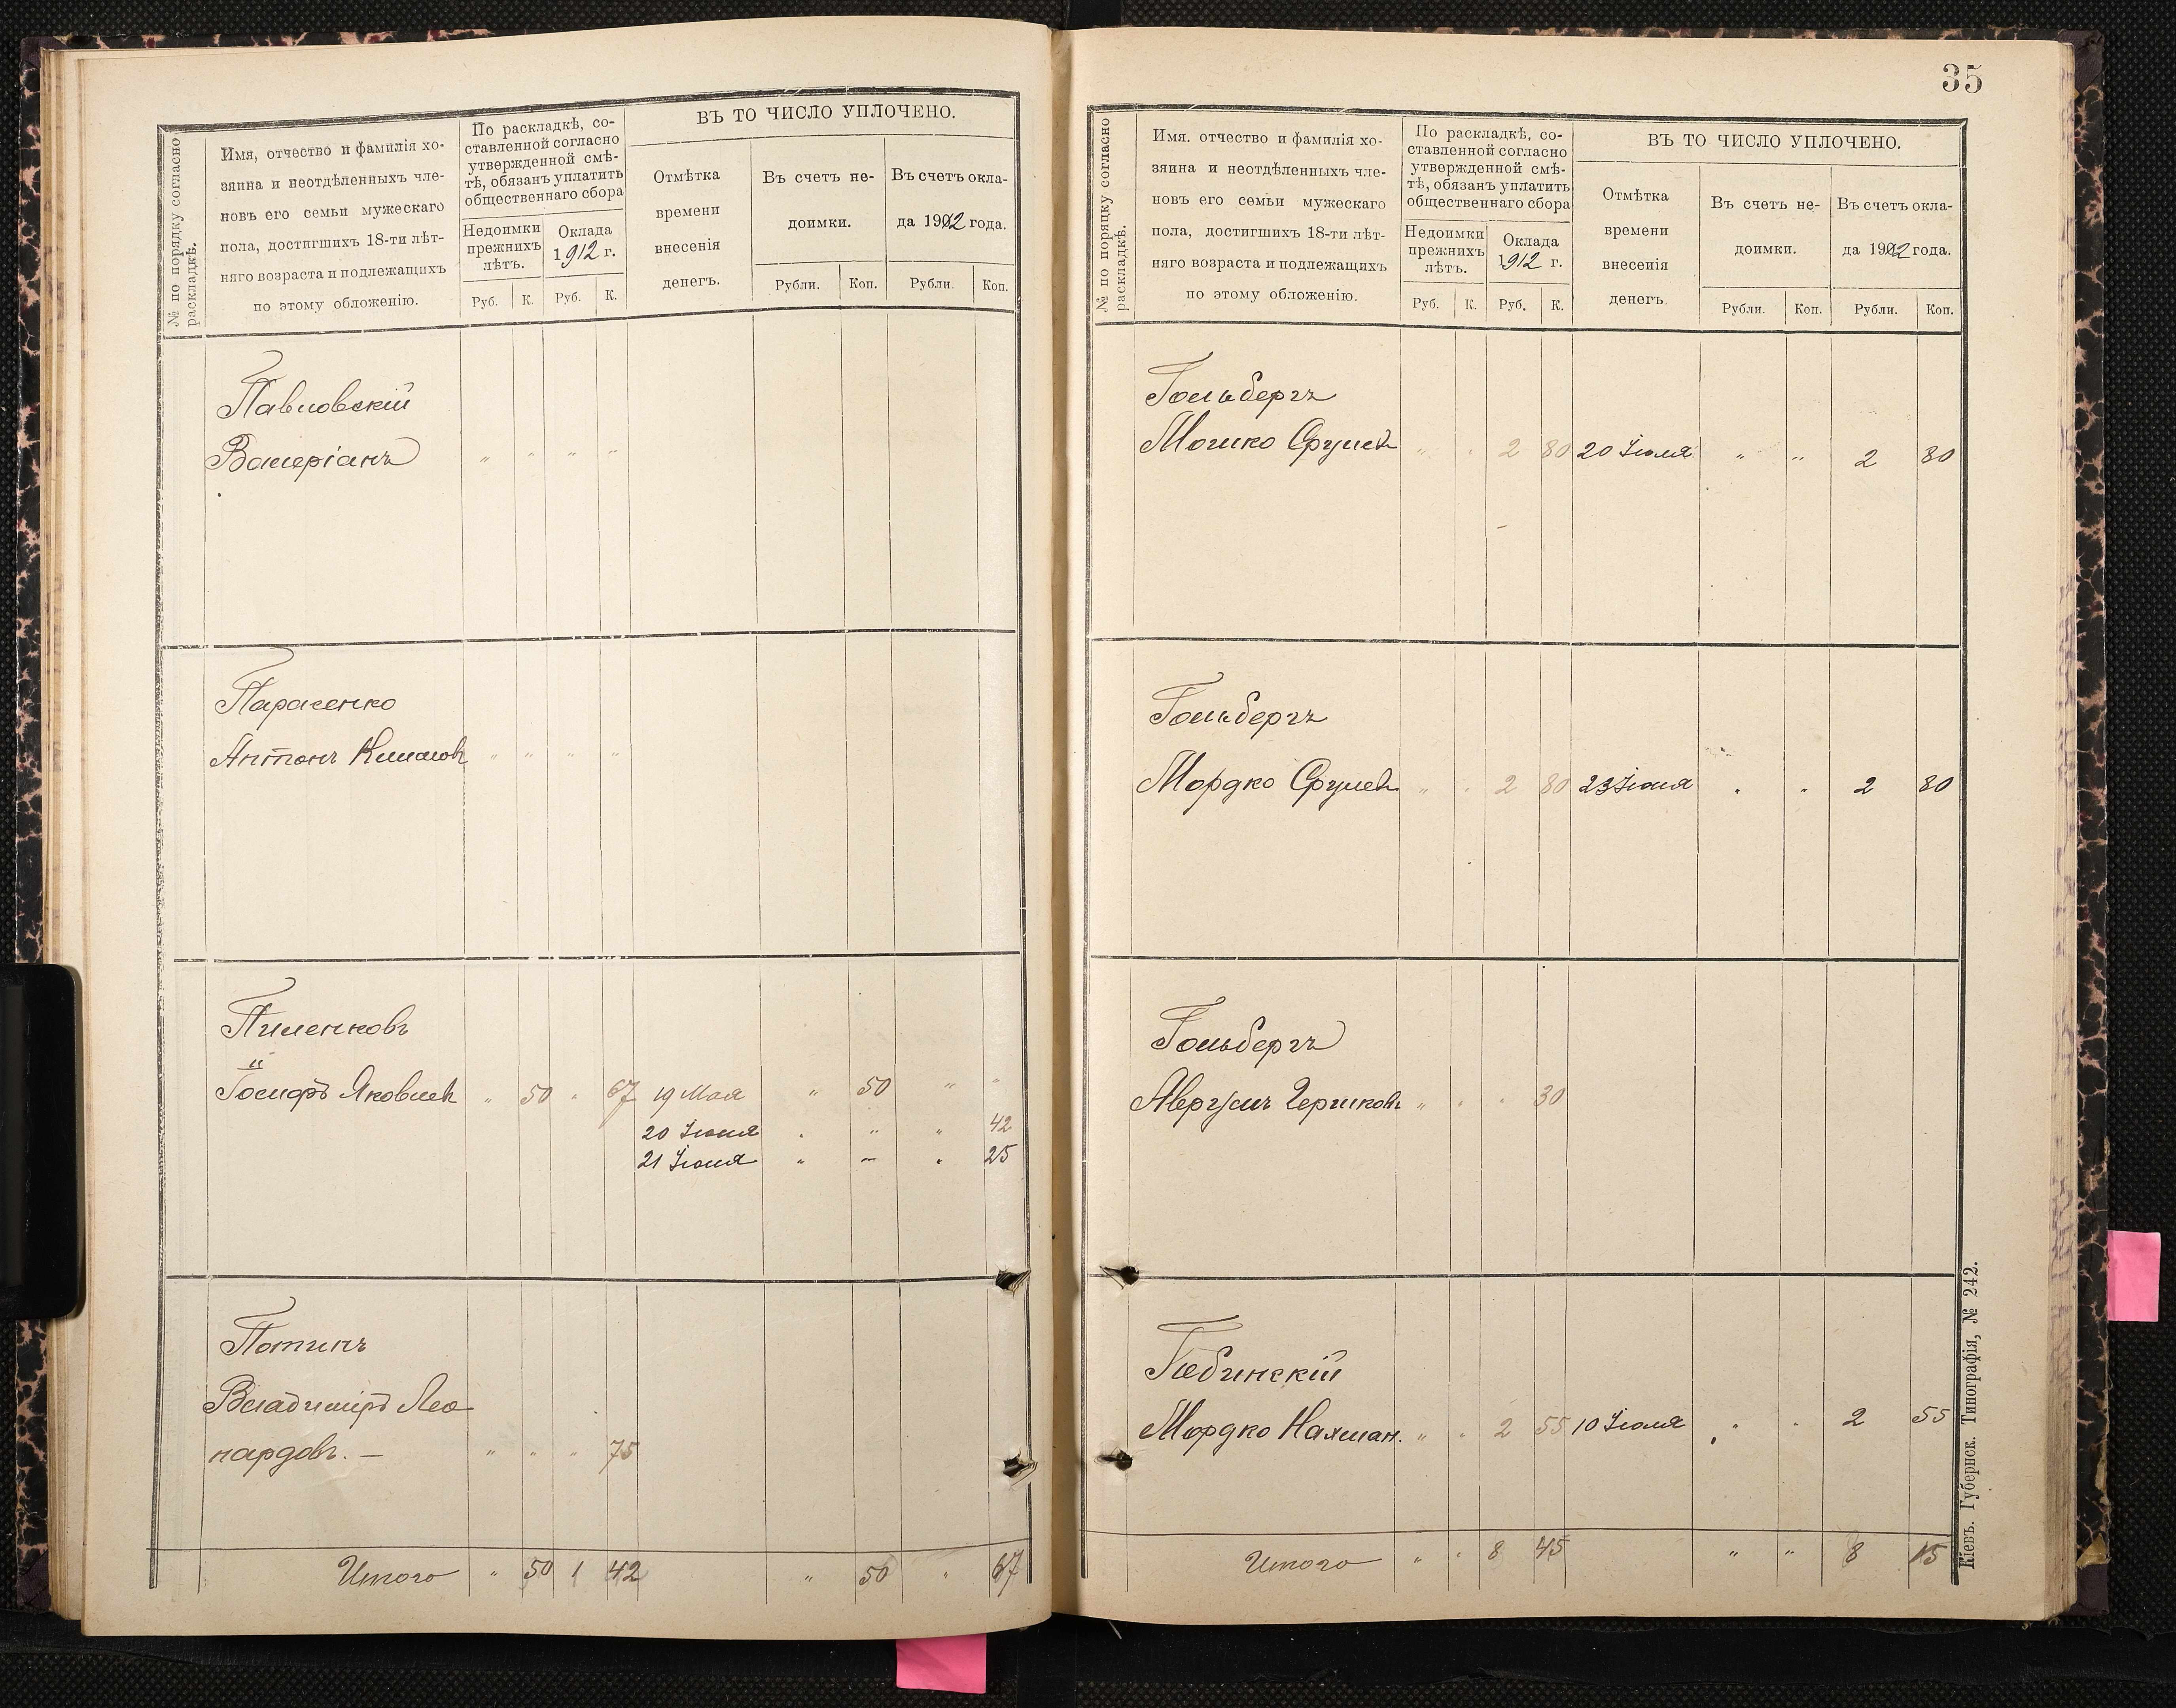 № по порядку согласно
раскладкѣ.
Имя, отчество и фамилія хо-
зяина и неотдѣленныхъ чле-
новъ его семьи мужескаго
пола, достигшихъ 18-ти лѣт-
няго возраста и подлежащихъ
по этому обложенію.
По раскладкѣ, со-
ставленной согласно
утвержденной смѣ-
тѣ, обязанъ уплатить
общественнаго сбора
Недоимки
прежнихъ
лѣтъ.
Руб. К.
Оклада
1912 г.
Руб. К.
ВЪ ТО ЧИСЛО УПЛОЧЕНО.
Отмѣтка
времени
внесенія
денегъ.
Въ счетъ не-
доимки.
Рубли. Коп.
Въ счетъ окла-
да 1912 года.
Рубли. Коп.
Павловскій
Валеріанъ " " " "
Парасенко
Антонъ " " " "
Пиленковъ
Іосифъ Яковлев " 50 " 67 19 Мая " 50 " "
20 Іюня " " " 42
21 Іюня " — " 25
Потинъ
Владиміръ Лео
нардовъ. — " " " 75
Итого " 50 1 42 " 50 " 67
35
№ по порядку согласно
раскладкѣ.
Имя. отчество и фамилія хо-
зяина и неотдѣленныхъ чле-
новъ его семьи мужескаго
пола, достигшихъ 18-ти лѣт-
няго возраста и подлежащихъ
по этому обложенію.
По раскладкѣ, со-
ставленной согласно
утвержденной смѣ-
тѣ, обязанъ уплатить
общественнаго сбора
Недоимки
прежнихъ
лѣтъ.
Руб. К.
Оклада
1912 г.
Руб. К.
ВЪ ТО ЧИСЛО УПЛОЧЕНО.
Отмѣтка
времени
внесенія
денегъ.
Въ счетъ не-
доимки.
Рубли. Коп.
Въ счетъ окла-
да 1912 года.
Рубли. Коп.
Гольбергъ
Мошко Срулев " " 2 80 20 Іюля " " 2 80
Гольбергъ
Мордко Срулев " " 2 80 23 Іюля " " 2 80
Гольбергъ
Авергумъ Гершков " " " 30
Гебинскій
Мордко Нахман. " " 2 55 10 Іюля " " 2 55
Итого " " 8 45 " " 8 15
Кіевъ. Губернск. Типографія, № 242.